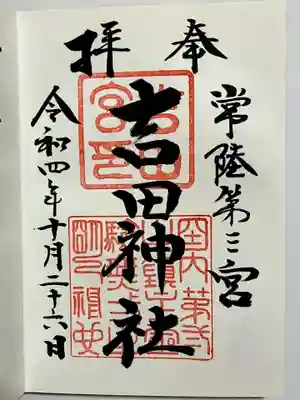 奉拝
常陸第三宮
吉田神社
令和四年十月二十六日